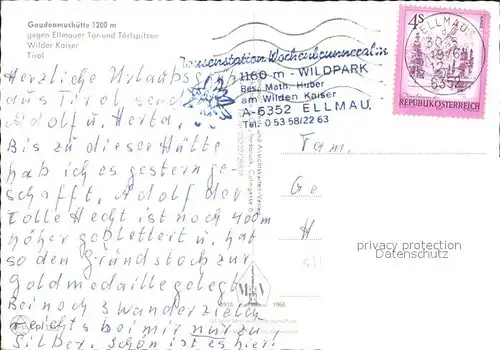 Gaudeamushütte 1200 m
gegen Ellmauer Tor und Törlspitzen
Wilder Kaiser
Tirol
Jausenstation Wochenbrunneralm
1160 m - WILDPARK
Bes. Math. Huber
am Wilden Kaiser
A-6352 ELLMAU
Tel. 0 53 58/22 63
4S
REPUBLIK ÖSTERREICH
ELLMAU
6352
Herzliche Urlaubs
aus Tirol, send
Adolf u. Herta.
Bis zu dieser Hütte
hab ich es gestern ge-
schafft, Adolf der
tolle Hecht ist noch 400m
höher geklettert u. hat
so den Grundstock zur
Goldmedaille gelegt
Bei noch 3 Wanderzielen
reicht's bei mir nur zu
Silber. Schön ist es hier!
Fam.
Ge
H
privacy protection
Datenschutz